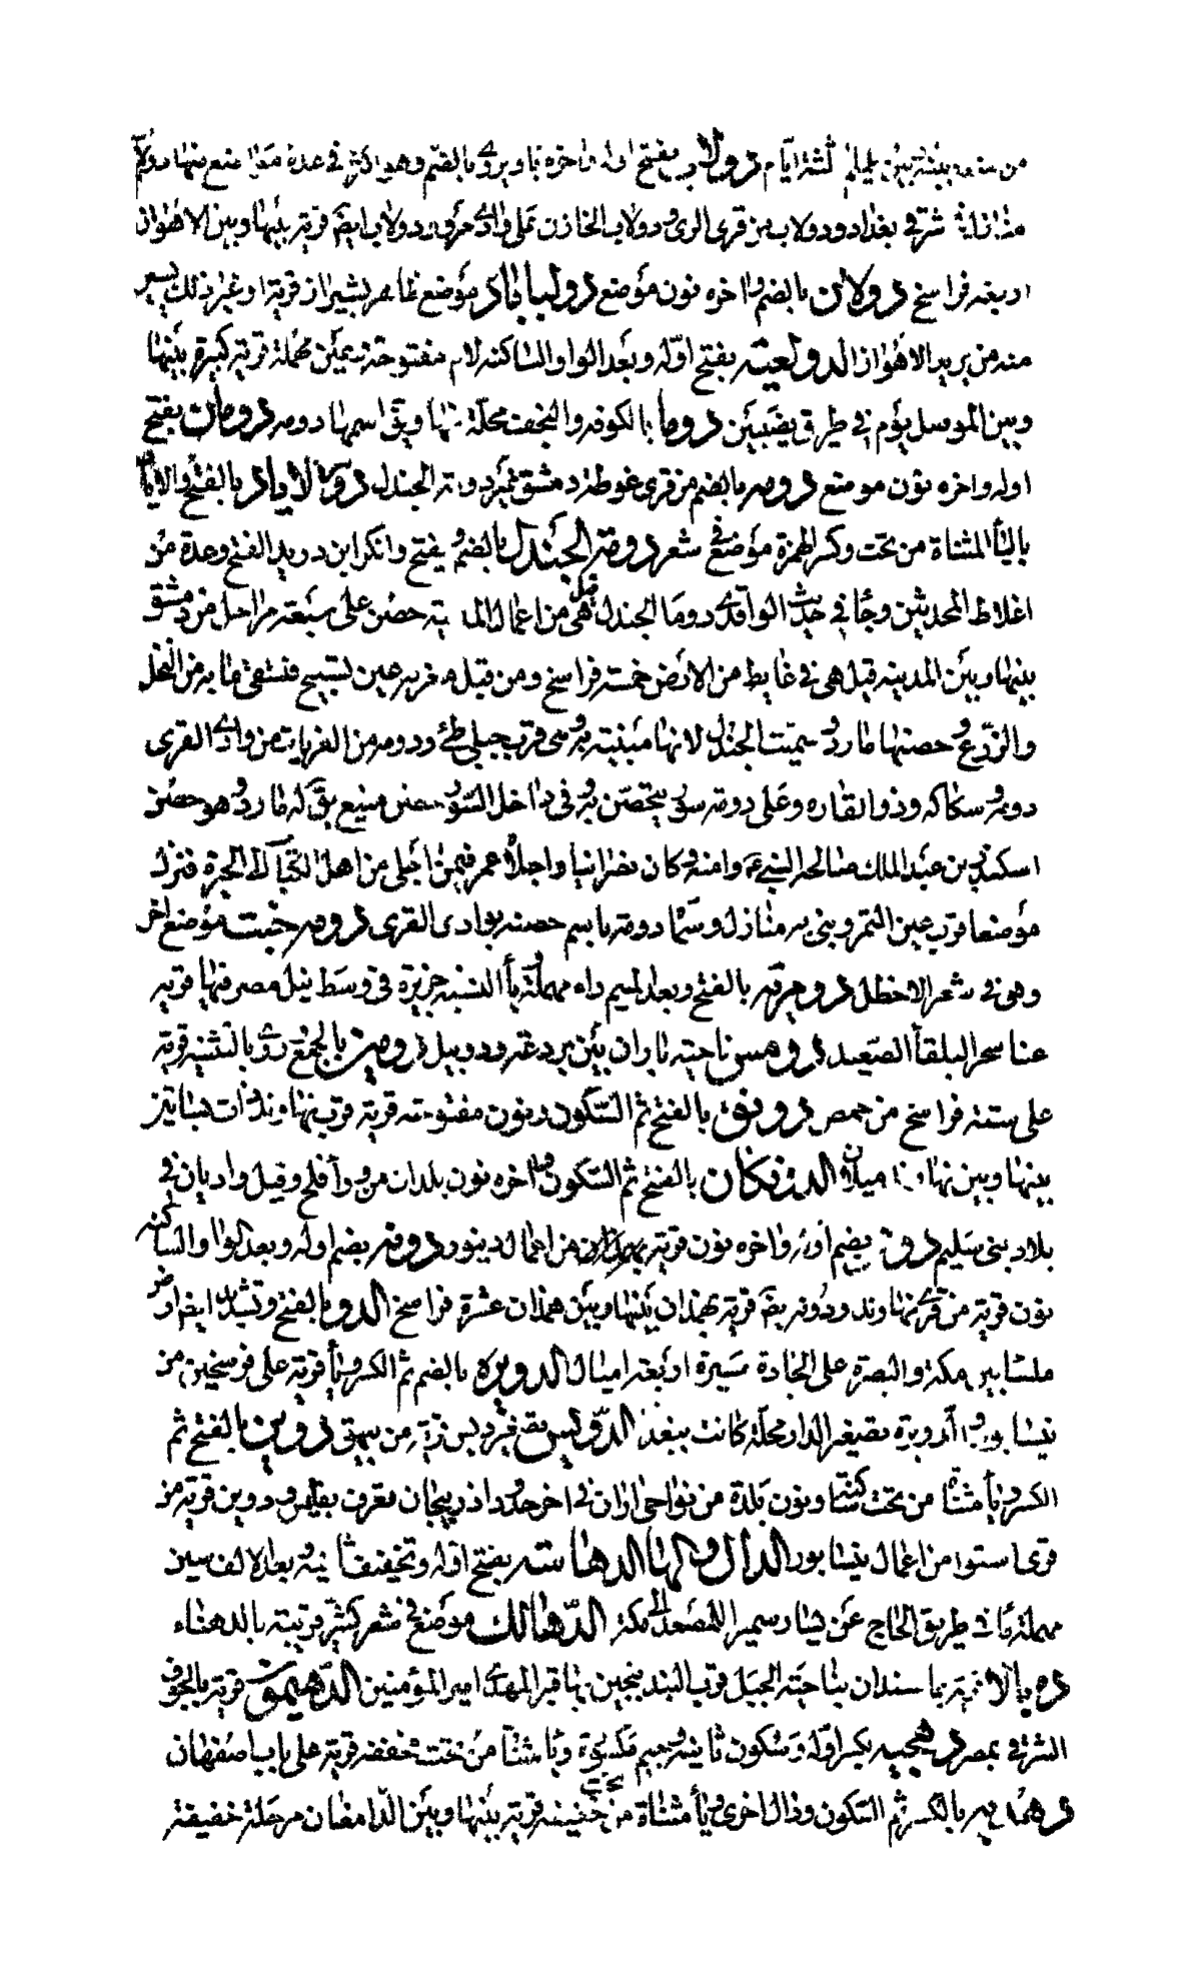 من صنعا بينه وبين يلملم ثلثة ايام دولاب بفتح اوله واخره باء ويروى بالضم وهو اكثر فى عدة مواضع منها دولاب
مبارك شرقى بغداد ودولاب من قرى الرى ودولاب الخازن على وادى مرو ودولاب ايضا قرية بينها وبين الاهواز
اربعة فراسخ دولان بالضم واخره نون موضع دولباباد موضع ظاهر بشيراز قرية او غير ذلك يسير
منه من يريد الاهواز الدولعيه بفتح اوله وبعد الواو الساكنه لام مفتوحة وعين مهملة قرية كبيرة بينها
وبين الموصل يوم فى طريق نصيبين دوما بالكوفه والنجف محلة منها ويق اسمها دومه دومان بفتح
اوله واخره نون موضع دومه بالضم من قرى غوطة دمشق غير دومة الجندل دوما لاياد بالفتح والاياد
بالياء المثناة من تحت وكسر الهمزة موضع فى شعر دومة الجندل بالضم ويفتح وانكر ابن دريد الفتح وعده من
اغلاط المحدثين وجا فى حديث الواقدى دوما الجندل قيل هى من اعمال المدينه حصن على سبعة مراحل من دمشق
بينها وبين المدينه قيل هى فى غايط من الارض خمسة فراسخ ومن قبل مغربه عين تسيح فتسقى ما به من النخل
والزرع وحصنها مارد وسميت الجندل لانها مبنية به وهى قرب جبلى طئ ودومه من القريات من وادى القرى
دومه وسكاكه وذو القاره وعلى دومة سور يتحصن به وفى داخل السور حصن منيع يق له مارد وهو حصن
اسكندر بن عبد الملك صالحه النبى ع م وامنه وكان نصرانيا واجلاه عمر فيمن اجلى من اهل الكتاب الى الحيرة فنزل
موضعا قرب عين التمر وبنى به منازل وسماه دومة باسم حصنه بوادى القرى دومه خبت موضع اخر
وهى فى شعر الاخطل دومرية بالفتح وبعد الميم راء مهملة وياء النسبة جزيرة فى وسط نيل مصر فيها قرية
عنا سحر البلقا الصعيد دوميس ناحية باران بين بردعة ودوبيل دومين بالجمع وروى بالتثنية قرية
على ستة فراسخ من حمص دونق بالفتح ثم السكون ونون مفتوحة قرية قرب نهاوند ذات بساتين
بينها وبين نهاوند ميلان الدونكان بالفتح ثم السكون واخره نون بلدان من وراء فلج وقيل واديان فى
بلاد بنى سليم دون بضم اوله واخره نون قرية من اعمال دينور دونه بضم اوله وبعد الواو الساكنه
نون قرية من قرى نهاوند ودونه ايضا قرية بهمذان بينها وبين همذان عشرة فراسخ الدو بالفتح وتشديد ايضا ارض
ملسا بين مكة والبصرة على الجادة مسيرة اربعة اميال الدويره بالضم ثم الكسر وياء قرية على فرسخين من
نيسابور الدويرة تصغير الدار محلة كانت ببغداد الدويس قرية من بيهق دوين بالفتح ثم
الكسر وياء مثناة من تحت ساكنة ونون بلدة من نواحى اران فى اخر حدود اذربيجان بقرب تفليس ودوين قرية من
قرى استوا من اعمال نيسابور الدال والهاء الدهاسه بفتح اوله وتخفيف ثانيه وبعد الالف سين
مهملة ماء فى طريق الحاج عن يسار سميرا للمصعد الى مكة الدهالك موضع فى شعر كثير قريبة بالدهناء
ده بالا قرية بماسندان بناحية الجبل قرب البندنيجين بها قبر المهدى امير المؤمنين الدهتمون قرية بالحوف
الشرقى بمصر دهجيه بكسر اوله وسكون ثانيه وجيم مكسورة وياء مثناة من تحت مخففه قرية على باب اصفهان
دهديه بالكسر ثم السكون ودال اخرى وياء مثناة من تحت خفيفه قرية بينها وبين الدامغان مرحلة خفيفة